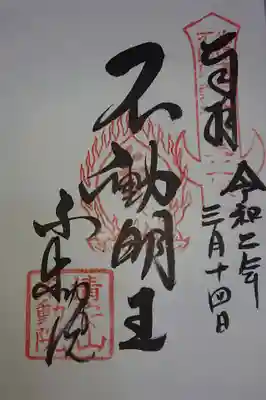 奉拝
令和二年
三月十四日
不動明王
不動院